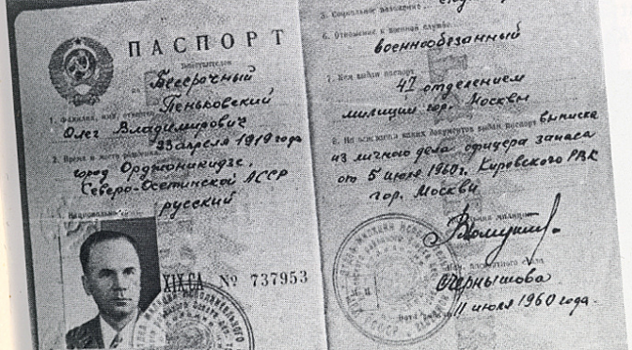 ПАСПОРТ
Бессрочный
Пеньковский
1. Фамилия, имя, отчество
Олег Владимирович
23 апреля 1919 года
2. Время и место рождения
город Орджоникидзе,
Северо-Осетинской АССР
русский
XIX-СА № 737953
5. Социальное положение
6. Отношение к военной службе
военнообязанный
7. Кем выдан паспорт
41 отделением
милиции гор. Москвы
8. На основании каких документов выдан паспорт выписка
из личного дела офицера запаса
от 5 июля 1960г. Кировского РВК
гор. Москвы
Чернышова
11 июля 1960 года.